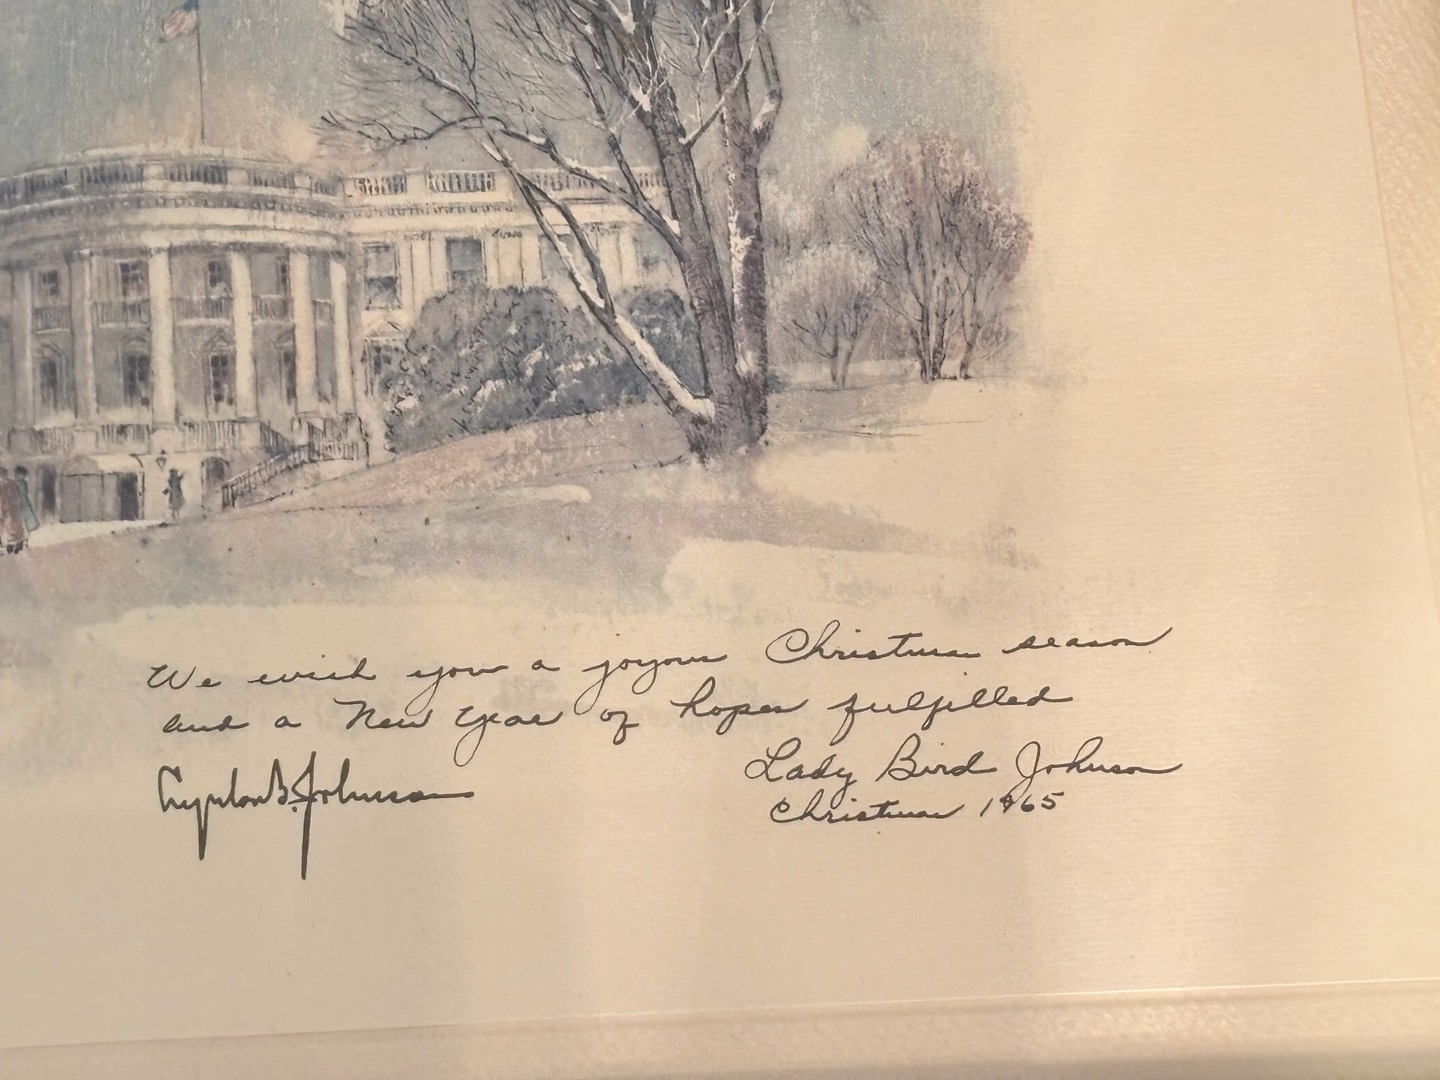 We wish you a joyous Christmas season
and a New Year of hopes fulfilled
Lyndon B. Johnson
Lady Bird Johnson
Christmas 1965